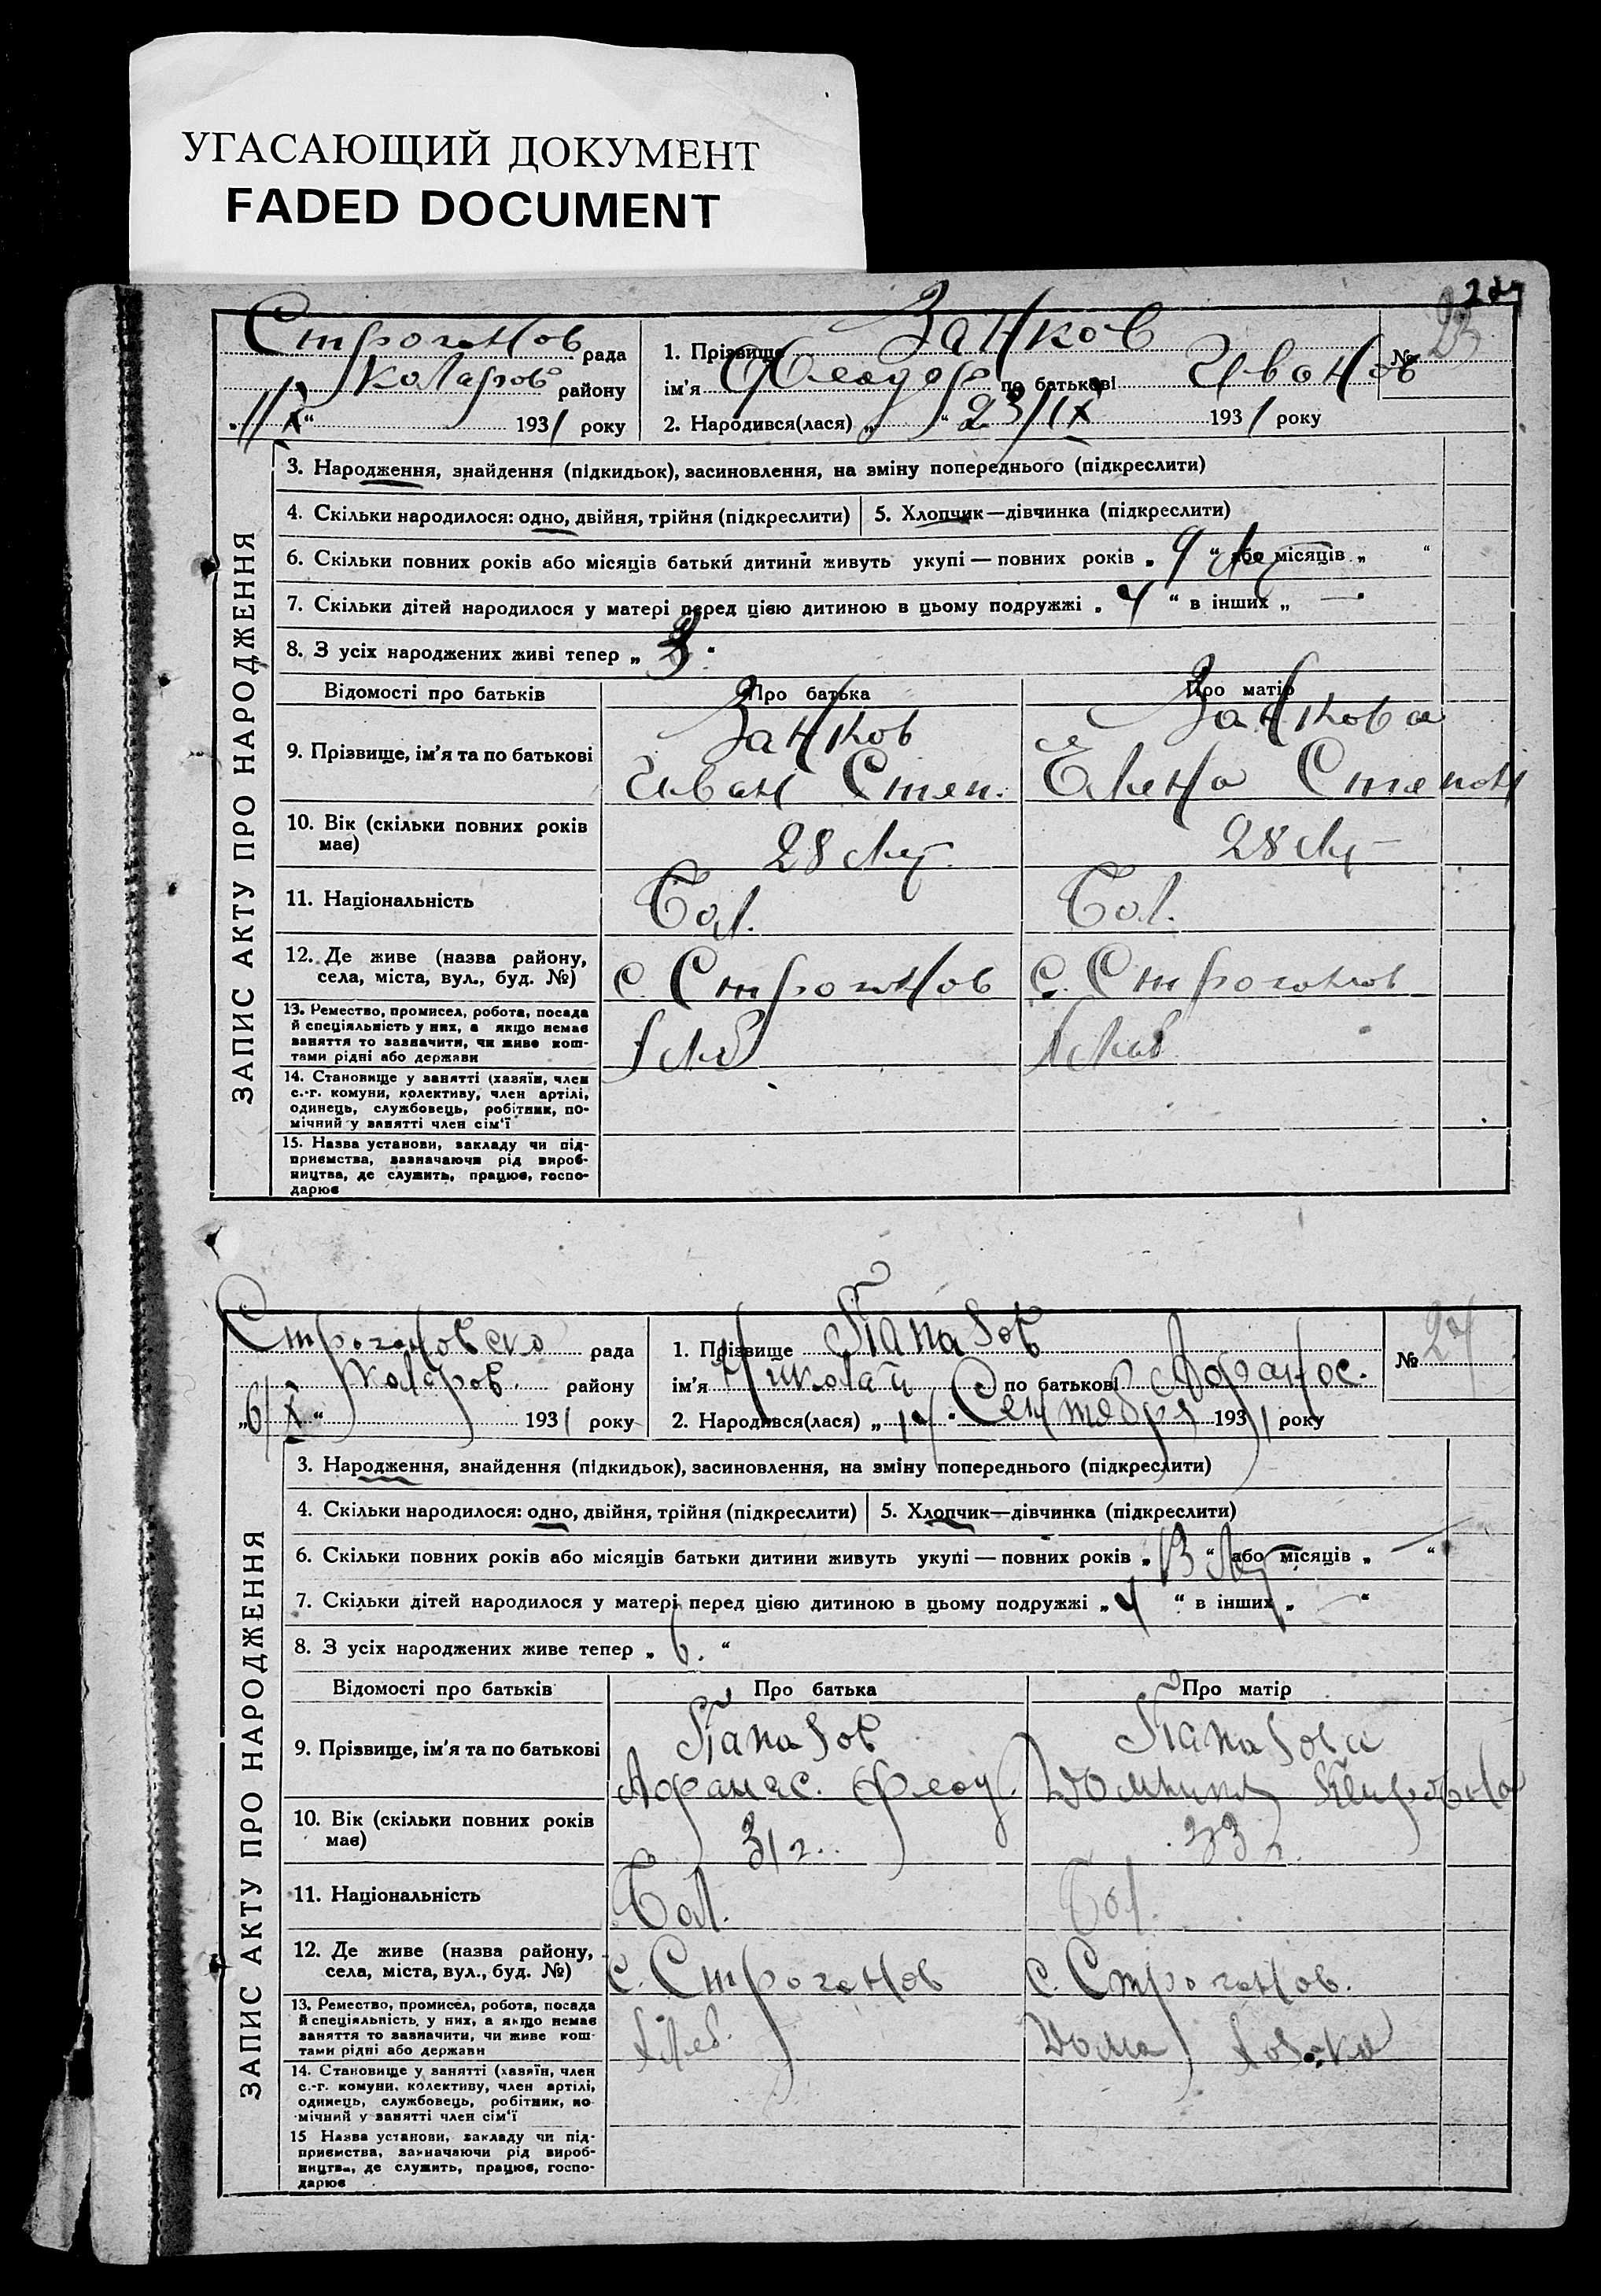 УГАСАЮЩИЙ ДОКУМЕНТ
FADED DOCUMENT
Строганов рада
Коларов району
„11/X“ 1931 року
1. Прізвище Занков
ім'я Феодор по батькові Иванов
2. Народився(лася) „ “ 23/IX 1931 року
№ 23
ЗАПИС АКТУ ПРО НАРОДЖЕННЯ
3. Народження, знайдення (підкидьок), засиновлення, на зміну попереднього (підкреслити)
4. Скільки народилося: одно, двійня, трійня (підкреслити)
5. Хлопчик—дівчинка (підкреслити)
6. Скільки повних років або місяців батьки дитини живуть укупі — повних років „ 9 лет “ або місяців „ “
7. Скільки дітей народилося у матері перед цією дитиною в цьому подружжі „ 4 “ в інших „ —
8. З усіх народжених живі тепер „ 3 “
Відомості про батьків Про батька Про матір
9. Прізвище, ім'я та по батькові
Занков Занкова
Иван Степ. Елена Степан
10. Вік (скільки повних років має)
28 лет 28 лет
11. Національність Бол. Бол.
12. Де живе (назва району, села, міста, вул., буд. №)
с. Строганов с. Строганов
13. Ремество, промисел, робота, посада
й спеціяльність у них, а якщо немає
заняття то зазначити, чи живе кош-
тами рідні або держави
14. Становище у занятті (хазяїн, член
с.-г. комуни, колективу, член артілі,
одинець, службовець, робітник, по-
мічний у занятті член сім'ї
15. Назва установи, закладу чи під-
приємства, зазначаючи рід вироб-
ництва, де служить, працює, госпо-
дарює
Строгановско рада
Коларов. району
„6/X“ 1931 року
1. Прізвище Папазов
ім'я Николай по батькові Афанос.
2. Народився(лася) „ 14 “ Сентября 1931 року
№ 24
ЗАПИС АКТУ ПРО НАРОДЖЕННЯ
3. Народження, знайдення (підкидьок), засиновлення, на зміну попереднього (підкреслити)
4. Скільки народилося: одно, двійня, трійня (підкреслити)
5. Хлопчик—дівчинка (підкреслити)
6. Скільки повних років або місяців батьки дитини живуть укупі — повних років „ 13 лет “ або місяців „ — “
7. Скільки дітей народилося у матері перед цією дитиною в цьому подружжі „ 4 “ в інших „ — “
8. З усіх народжених живе тепер „ 6. “
Відомості про батьків Про батька Про матір
9. Прізвище, ім'я та по батькові
Папазов Папазова
Афанас. Феод. Домникя
10. Вік (скільки повних років має)
31 г. 33 г.
11. Національність Бол. Бол.
12. Де живе (назва району, села, міста, вул., буд. №)
с. Строганов с. Строганов.
13. Ремество, промисел, робота, посада
й спеціяльність у них, а якщо немає
заняття то зазначити, чи живе кош-
тами рідні або держави
Хлеб. Дома
14. Становище у занятті (хазяїн, член
с.-г. комуни, колективу, член артілі,
одинець, службовець, робітник, по-
мічний у занятті член сім'ї
15 Назва установи, закладу чи під-
приємства, зазначаючи рід вироб-
ництва, де служить, працює, госпо-
дарює